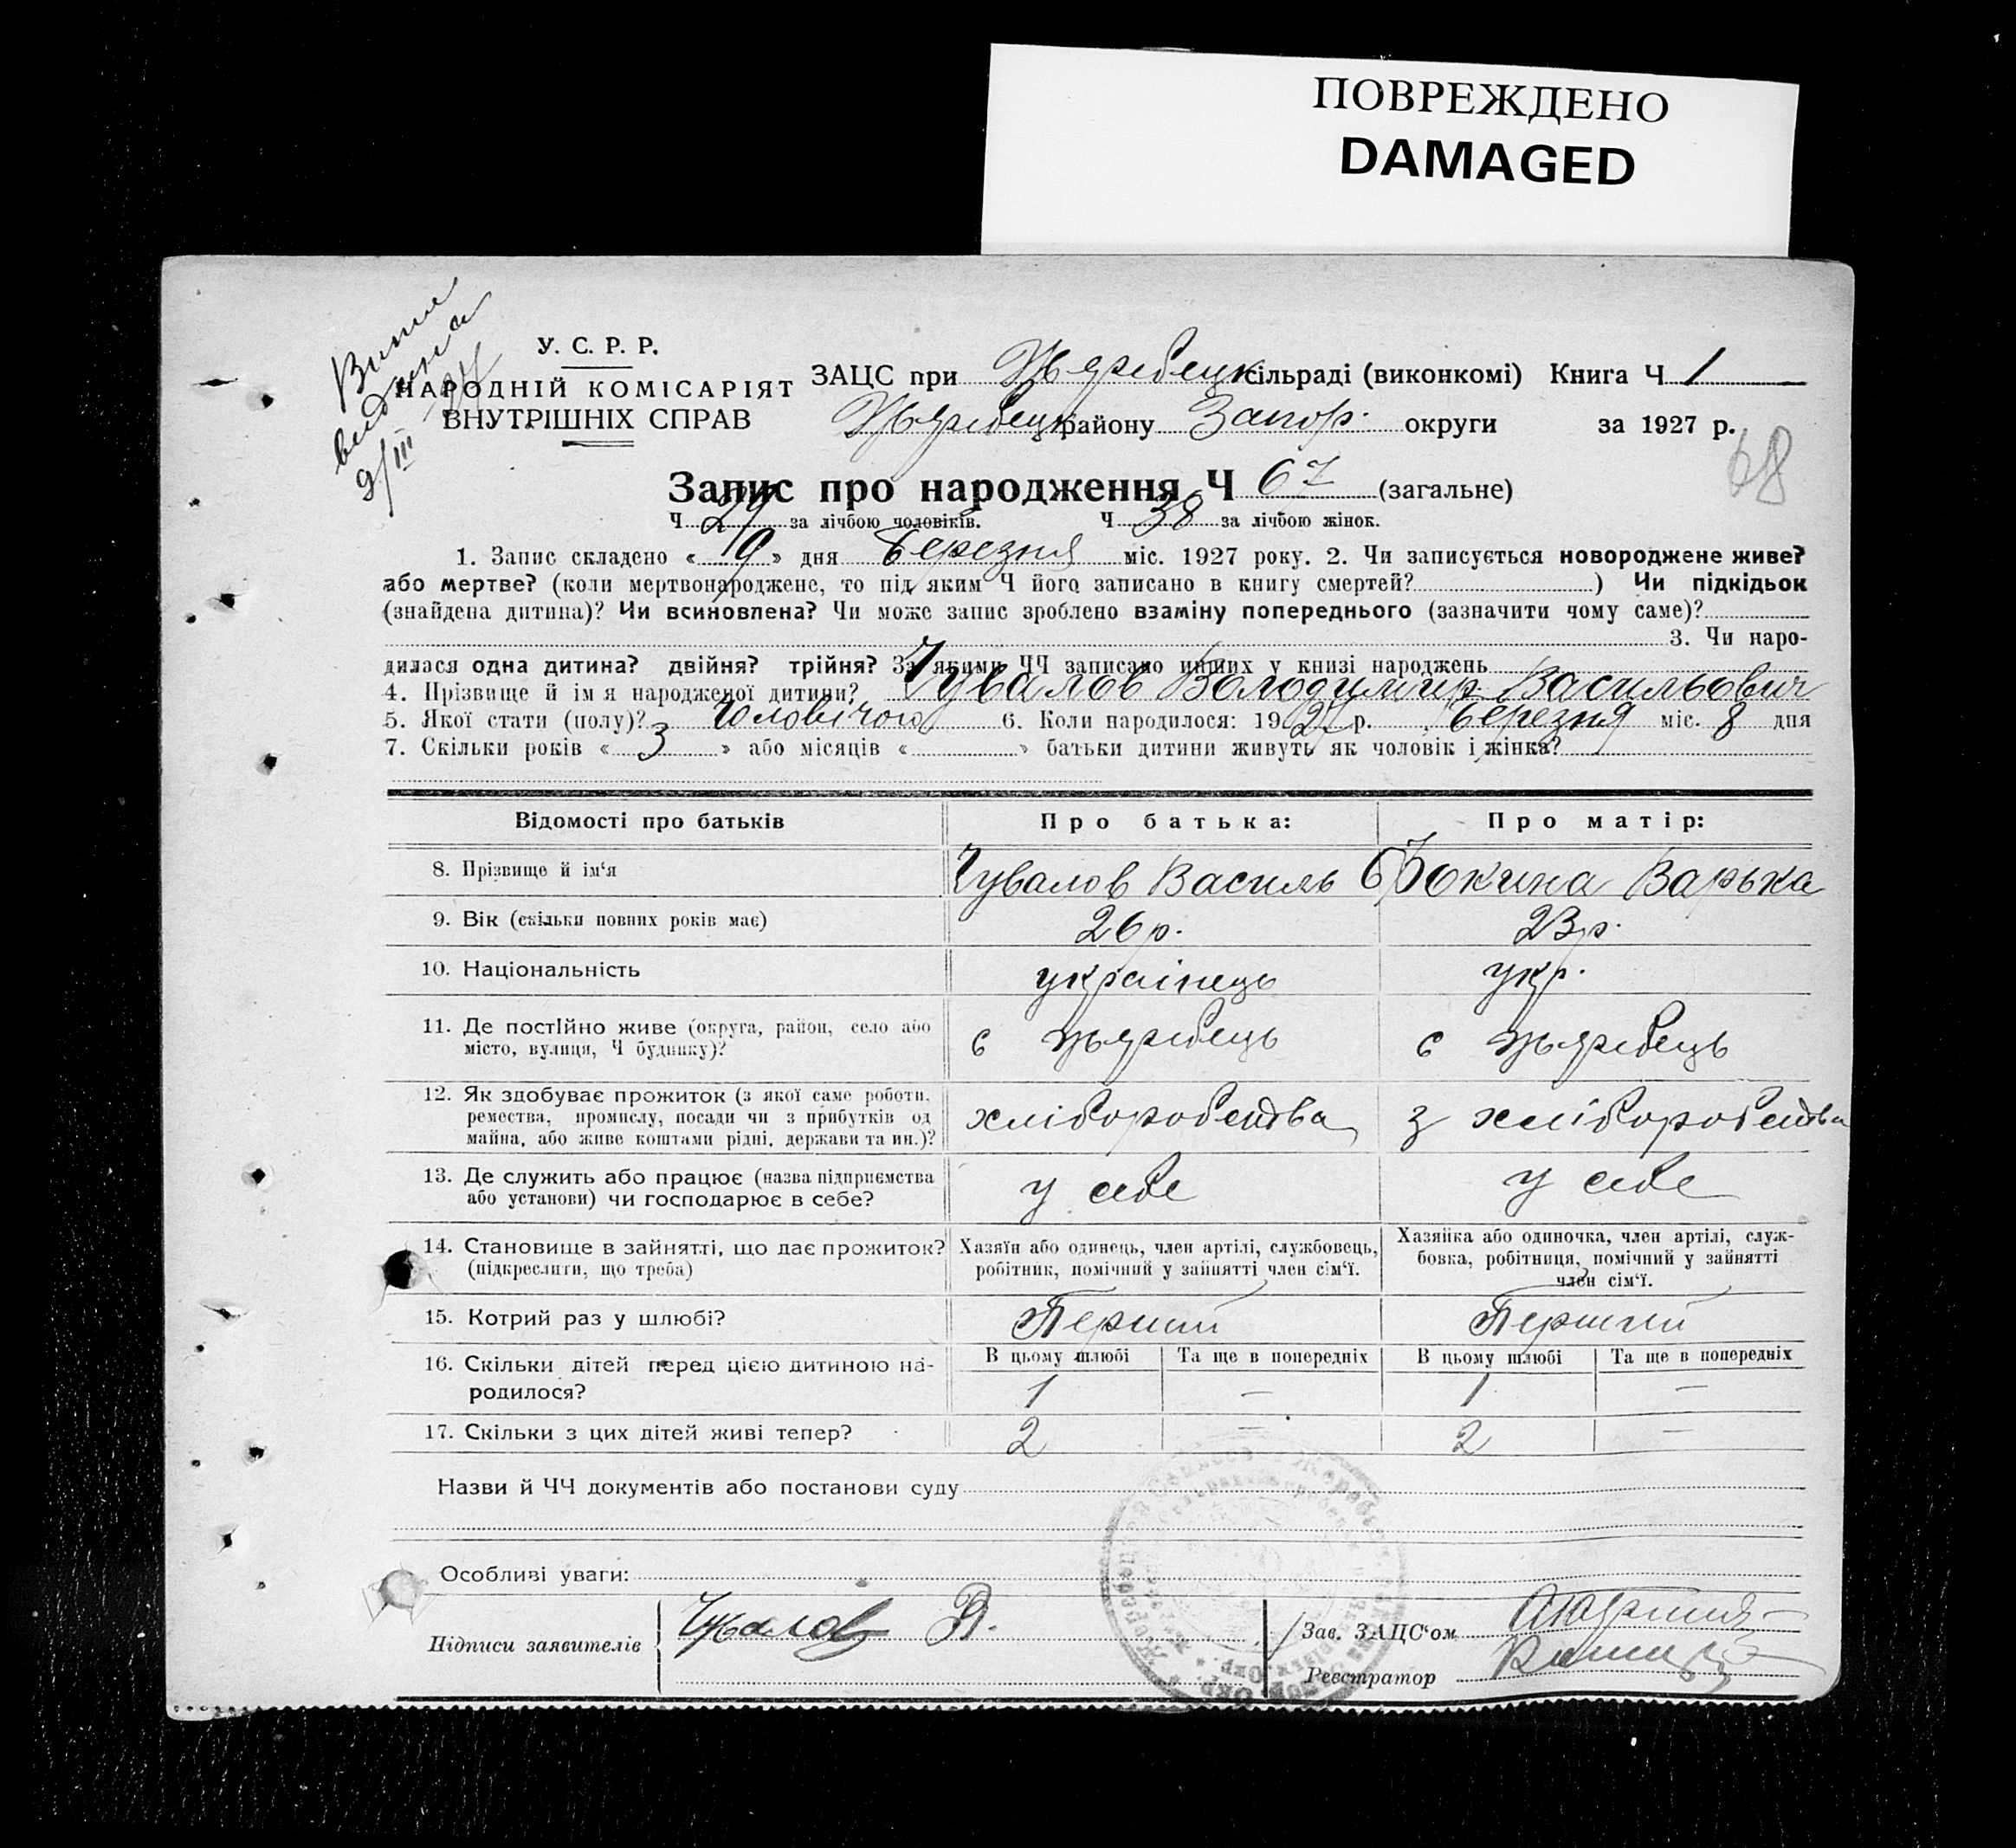 ПОВРЕЖДЕНО
DAMAGED
У. С. Р. Р.
НАРОДНІЙ КОМІСАРІЯТ
ВНУТРІШНІХ СПРАВ
ЗАЦС при Жеребецк сільраді (виконкомі) Книга Ч 1
Жеребецк району Запор. округи за 1927 р.
68
Запис про народження Ч 67 (загальне)
Ч 29 за лічбою чоловіків. Ч 38 за лічбою жінок.
1. Запис складено « 9 » дня Березня міс. 1927 року. 2. Чи записується новороджене живе?
або мертве? (коли мертвонароджене, то під яким Ч його записано в книгу смертей? ) Чи підкідьок
(знайдена дитина)? Чи всиновлена? Чи може запис зроблено взаміну попереднього (зазначити чому саме)?
3. Чи наро-
дилася одна дитина? двійня? трійня? За якими ЧЧ записано инших у книзі народжень
4. Прізвище й ім я народженої дитини? Чувалов Володимир Васильович
5. Якої стати (полу)? Чоловічого 6. Коли народилося: 1927 р. Березня міс. 8 дня
7. Скільки років « 3 » або місяців « » батьки дитини живуть як чоловік і жінка?
Відомості про батьків Про батька: Про матір:
8. Прізвище й ім‘я Чувалов Василь Бокина Варька
9. Вік (скільки повних років має) 26 р. 23 р.
10. Національність українець укр.
11. Де постійно живе (округа, район, село або
місто, вулиця, Ч будинку)? с Жеребець с Жеребець
12. Як здобуває прожиток (з якої саме роботи,
ремества, промислу, посади чи з прибутків од
майна, або живе коштами рідні, держави та ин.)? хліборобства з хліборобства
13. Де служить або працює (назва підприємства
або установи) чи господарює в себе? у себе у себе
14. Становище в зайнятті, що дає прожиток?
(підкреслити, що треба)
Хазяїн або одинець, член артілі, службовець,
робітник, помічний у зайнятті член сім‘ї.
Хазяйка або одиночка, член артілі, служ-
бовка, робітниця, помічний у зайнятті
член сім‘ї.
15. Котрий раз у шлюбі? Перший Перший
16. Скільки дітей перед цією дитиною на-
родилося?
В цьому шлюбі Та ще в попередніх В цьому шлюбі Та ще в попередніх
1 — 1 —
17. Скільки з цих дітей живі тепер? 2 — 2 —
Назви й ЧЧ документів або постанови суду
Особливі уваги:
Підписи заявителів Чувалов В.
Зав. ЗАЦС‘ом
Реєстратор